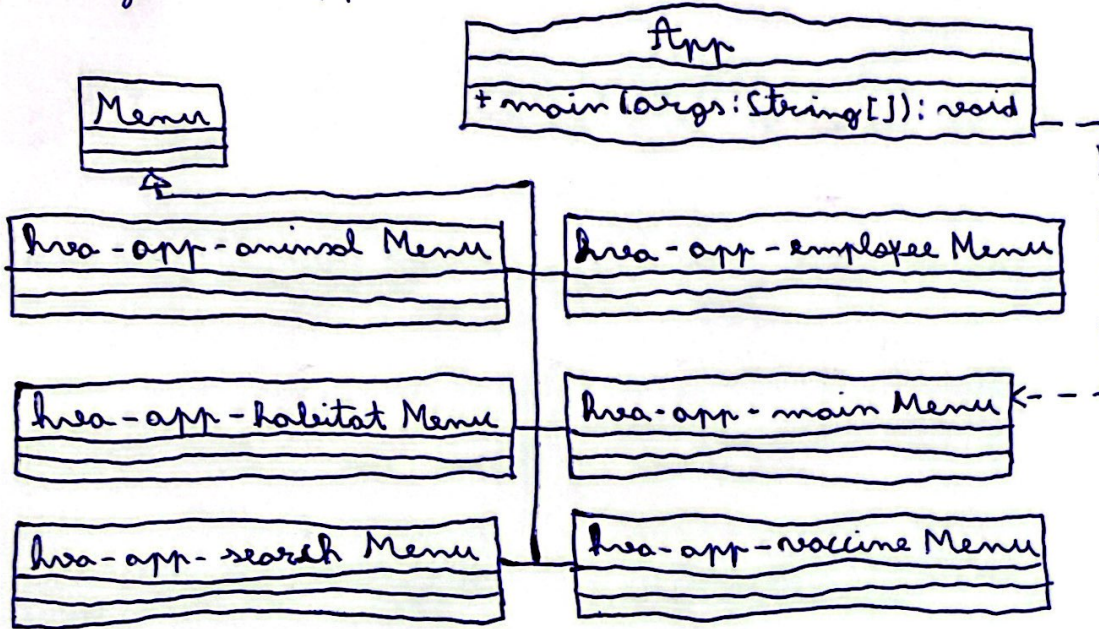 App
+ main (args: String[]): void
Menu
hva-app-animal Menu
hva-app-employee Menu
hva-app-habitat Menu
hva-app-main Menu
hva-app-search Menu
hva-app-vaccine Menu